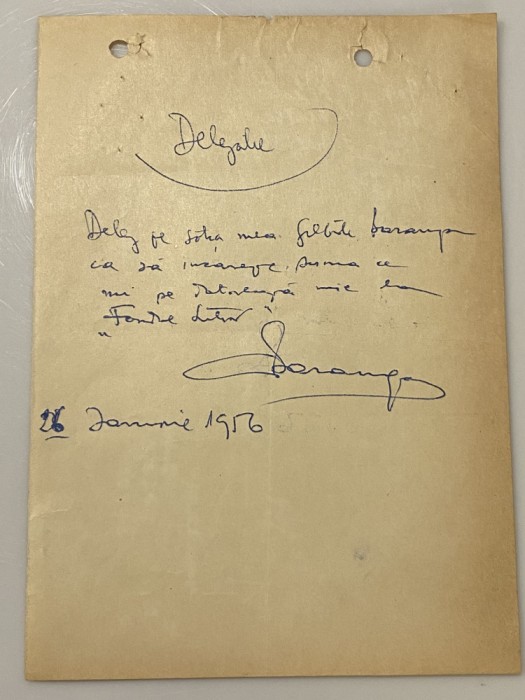 Delegație
Deleg pe soția mea Baranga
ca să încaseze suma ce
mi se datorează mie la
"Fondul Literar"
Baranga
26 Ianuarie 1956